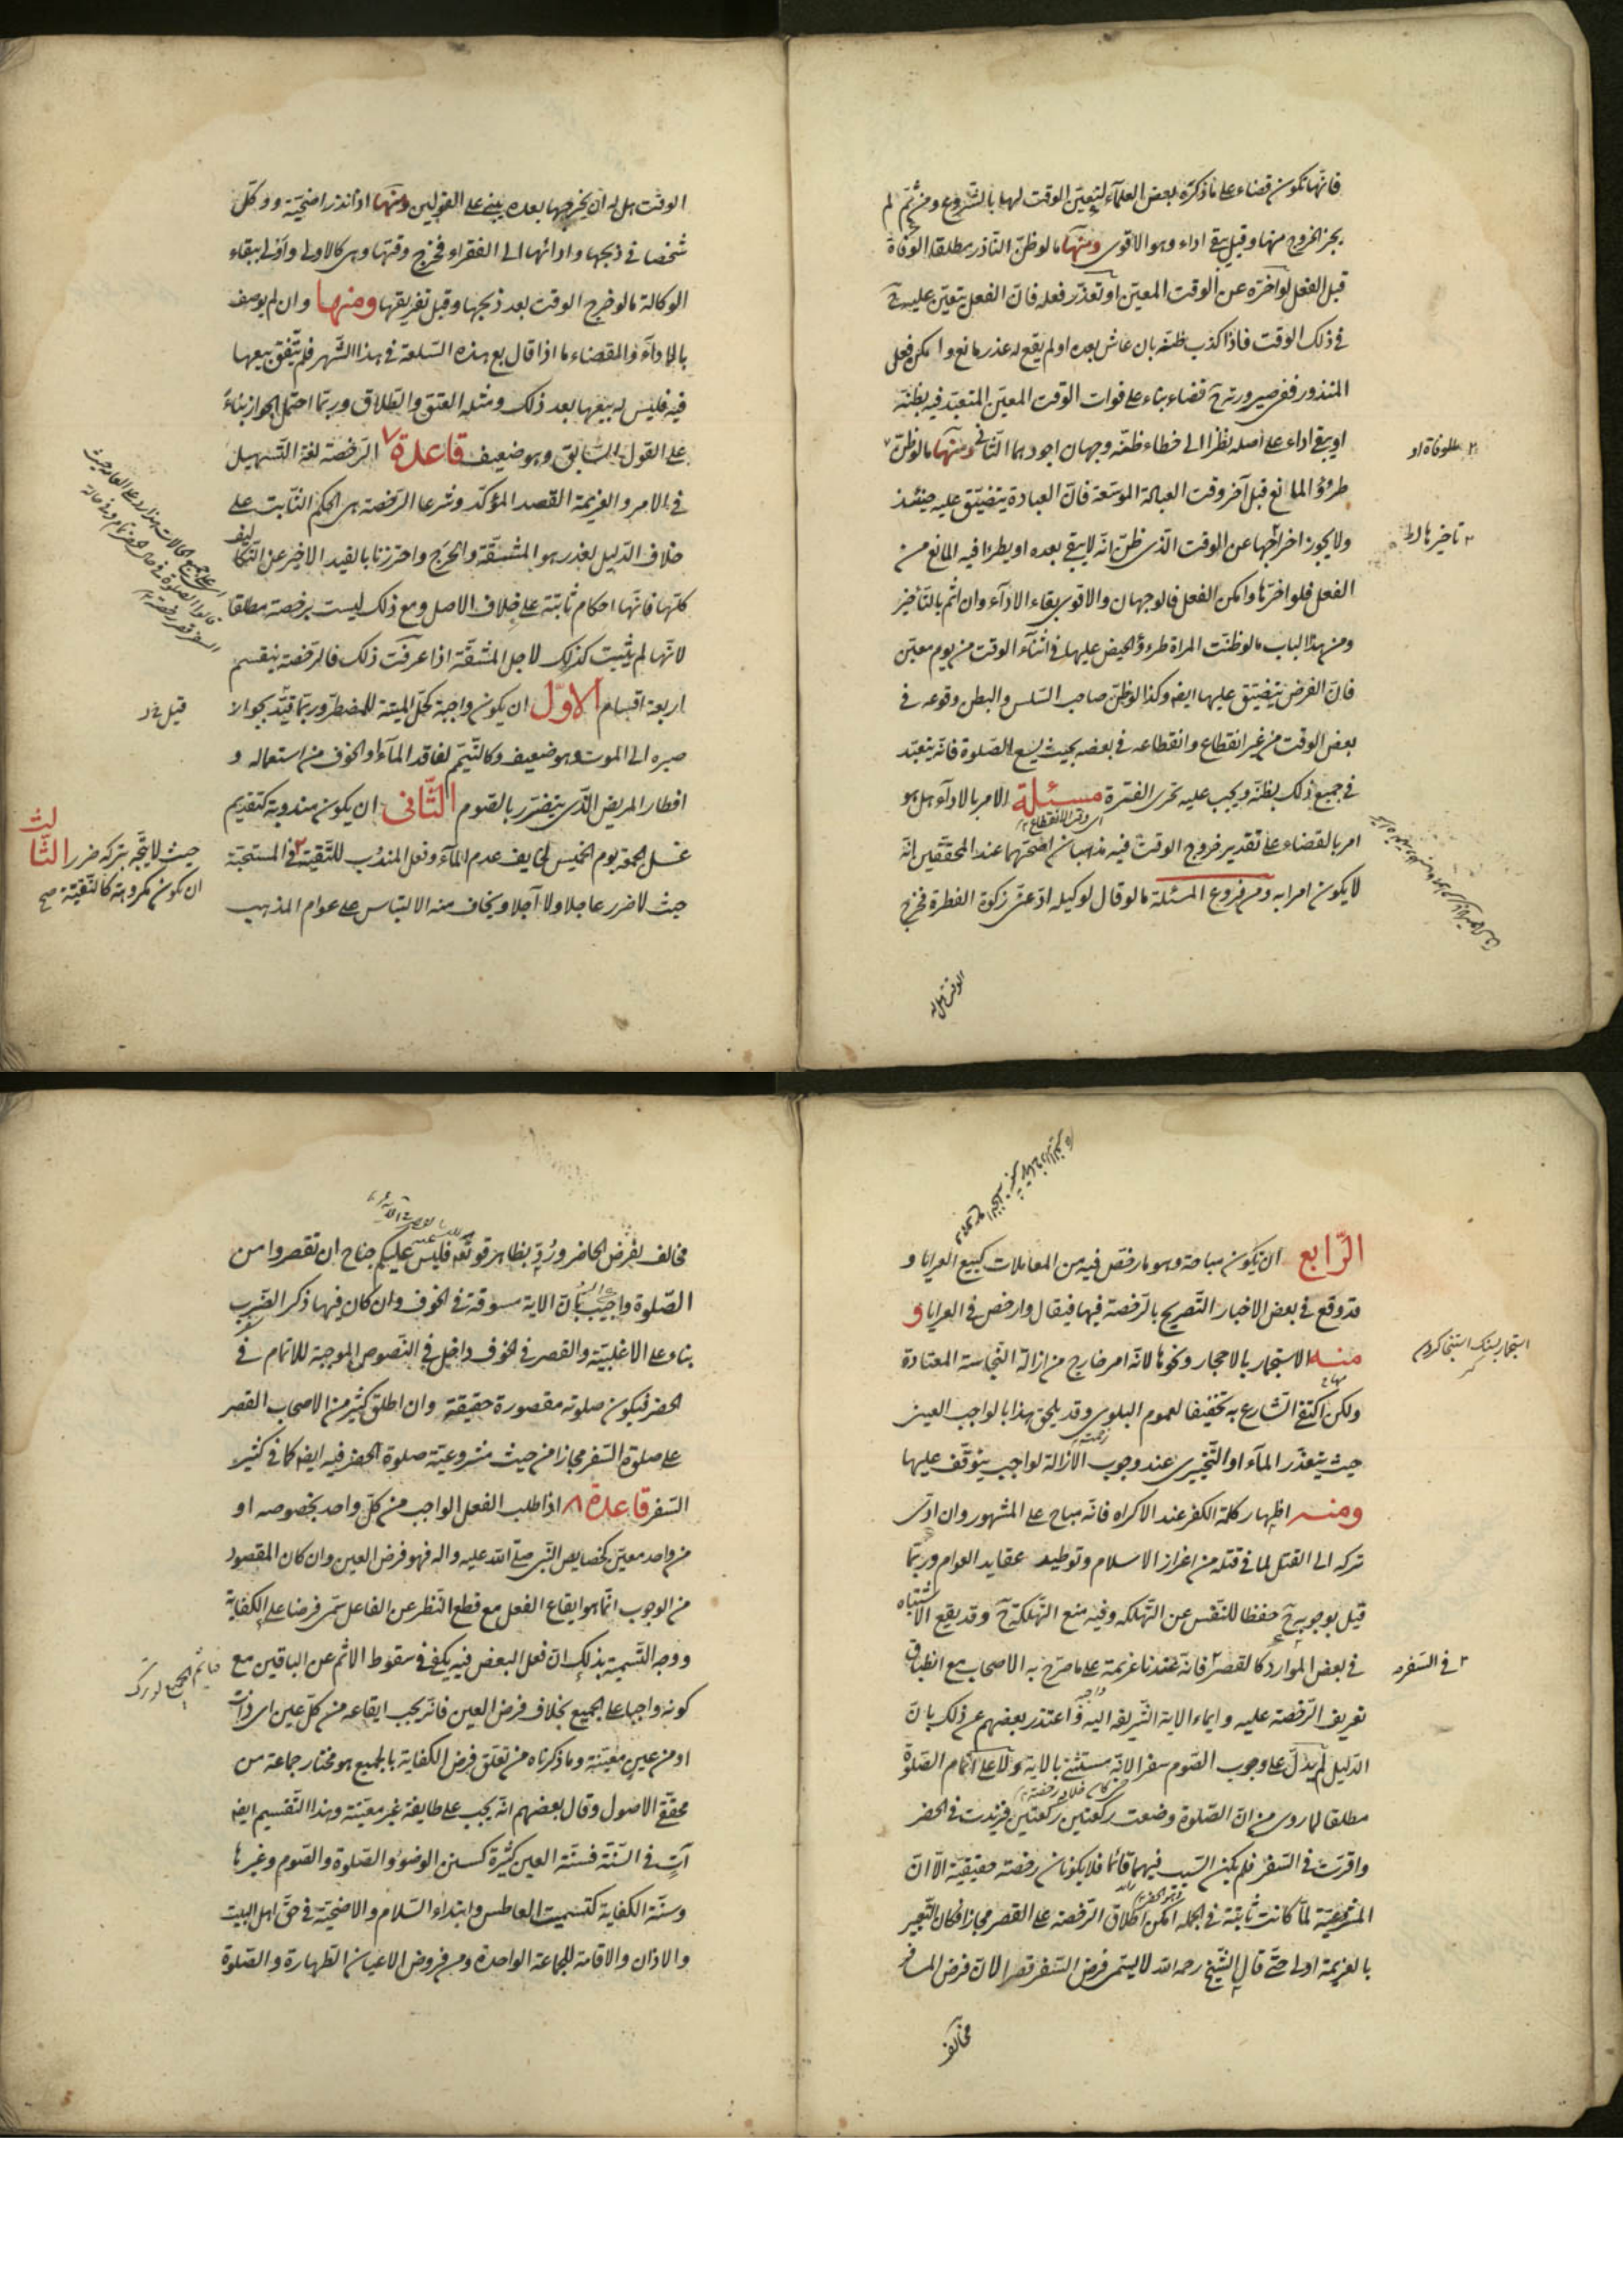 فانّها تكون قضاء على ما ذكره بعض العلمآء لتعيّن الوقت لها بالشروع ومن ثمّ لم
يجز الخروج منها وقيل يبقى اداء وهو الاقوى ومنها ما لو ظنّ الناذر مطلقا الوفاة
قبل الفعل لو اخّره عن الوقت المعيّن او تعذّر فعله فانّ الفعل يتعيّن عليه ح
في ذلك الوقت فاذا كذب ظنّه بان عاش بعده او لم يقع له عذر مانع وامكن فعل
المنذور ففي صيرورته ح قضاء بناء على فوات الوقت المعيّن المتعبّد فيه بظنّه
او يبقى اداء على اصله نظرا الى خطاء ظنّه وجهان اجودهما الثاني ومنها ما لو ظنّ
طروّ المانع قبل آخر وقت العبادة الموسّعة فانّ العبادة يتضيّق عليه حينئذ
ولا يجوز اخراجها عن الوقت الّذي ظنّ انّه لا يبقى بعده او يطرء فيه المانع من
تاخيرها
الفعل فلو اخّرها وامكن الفعل فالوجهان والاقوى بقاء الادآء وان اثم بالتأخير
ومن هذا الباب ما لو ظنّت المراة طروّ الحيض عليها في اثنآء الوقت من يوم معيّن
فانّ الفرض يتضيّق عليها ايضه وكذا لو ظنّ صاحب السّلس والبطن وقوعه في
بعض الوقت من غير انقطاع وانقطاعه في بعضه بحيث يسع الصّلوة فانّه يتعبّد
في جميع ذلك بظنّه ويجب عليه تحرّى الفترة مسئلة الامر بالادآء هل هو
اى وقت الانقطاع
امر بالقضاء على تقدير خروج الوقت فيه مذهبان اصحّهما عند المحقّقين انّه
لا يكون امرا به ومن فروع المسئلة ما لو قال لوكيله ادّ عنّى زكوة الفطرة فخرج
الوقت هل له
الوقت هل له ان يخرجها بعده يبنى على القولين ومنها اذا نذر اضحيّة ووكّل
شخصا في ذبحها وادائها الى الفقراء فخرج وقتها وهى كالاولى واولى ببقاء
الوكالة ما لو خرج الوقت بعد ذبحها وقبل تفريقها ومنها وان لم يوصف
بالاداء والقضاء ما اذا قال بع هذه السّلعة في هذا الشّهر فلم يتّفق بيعها
فيه فليس له بيعها بعد ذلك ومثله العتق والطّلاق وربّما احتمل الجواز بناءً
على القول السّابق وهو ضعيف قاعدة ٧ الرّخصة لغة التّسهيل
في الامر والعزيمة القصد المؤكّد وشرعا الرّخصة هى الحكم الثّابت على
خلاف الدّليل لعذر هو المشقّة والحرج واحترزنا بالقيد الاخير عن التّكاليف
كلّها فانّها احكام ثابتة على خلاف الاصل ومع ذلك ليست برخصة مطلقا
لانّها لم يثبت كذلك لاجل المشقّة اذا عرفت ذلك فالرّخصة ينقسم
اربعة اقسام الاوّل ان يكون واجبة كحلّ الميتة للمضطرّ وربّما قيّد بجواز
صبره الى الموت وهو ضعيف وكالتّيمّم لفاقد المآء او الخوف من استعماله و
افطار المريض الّذي يتضرّر بالصّوم الثّانى ان يكون مندوبة كتقديم
غسل الجمعة يوم الخميس لخايف عدم المآء وفعل المندوب للتّقيّة في المستحبّة
حيث لا ضرر عاجلا ولا آجلا ويخاف منه الالتباس على عوام المذهب
حيث لا يتّجه بتركه ضرر الثّالث
ان يكون مكروهة كالتّقيّة صح
الرّابع ان يكون مباحة وهو ما رخّص فيه من المعاملات كبيع العرايا و
قد وقع في بعض الاخبار التّصريح بالرّخصة فيها فيقال وارخص في العرايا و
منه الاستجمار بالاحجار ونحوها لانّه امر خارج من ازالة النجاسة المعتادة
ولكن اكتفى الشّارع به تخفيفا لعموم البلوى وقد يلحق هذا بالواجب العينى
حيث يتعذّر المآء او التّخييرى عند وجوب الازالة لواجب يتوقّف عليها
ومنه اظهار كلمة الكفر عند الاكراه فانّه مباح على المشهور وان ادّى
تركه الى القتل لما في قتله من اعزاز الاسلام وتوطيد عقايد العوام وربّما
قيل بوجوبه ح حفظا للنّفس عن التّهلكه وفيه منع التّهلكة ح وقد يقع الاشتباه
في بعض الموارد كالقصر فانّه عندنا عزيمة على ما صرّح به الاصحاب مع انطباق
في السّفر
تعريف الرّخصة عليه وايماء الاية الشّريفة اليه واعتذر بعضهم عن ذلك بانّ
الدّليل لم يدلّ على وجوب الصّوم سفرا لانّه مستثنى بالاية ولا على اتمام الصّلوة
مطلقا لما روى من انّ الصّلوة وضعت ركعتين ركعتين فزيدت في الحضر
واقرّت في السّفر فلم يكن السّبب فيهما قائما فلا يكونان رخصة حقيقيّة الّا انّ
المشروعيّة لمّا كانت ثابتة في الجملة امكن اطلاق الرّخصة على القصر مجازا فكان التّعبير
بالعزيمة اولى حتّى قال الشّيخ رحمه الله لا يسمّى فرض السّفر قصرا لانّ فرض المسافر
مخالف
مخالف لفرض الحاضر ورُدّ بظاهر قوله تعه فليس عليكم جناح ان تقصروا من
الصّلوة واجيب بانّ الاية مسوقة في الخوف وان كان فيها ذكر الضّرب
بناء على الاغلبيّة والقصر في الخوف داخل في النّصوص الموجبة للاتمام في
الحضر فيكون صلوته مقصورة حقيقة وان اطلق كثير من الاصحاب القصر
على صلوة السّفر مجازا من حيث مشروعيّة صلوة الحضر فيه ايضه كما في كثير
السّفر قاعدة ٨ اذا طلب الفعل الواجب من كلّ واحد بخصوصه او
من واحد معيّن كخصايص النّبى صلّى الله عليه واله فهو فرض العين وان كان المقصود
من الوجوب انّما هو ايقاع الفعل مع قطع النّظر عن الفاعل سمّى فرضا على الكفاية
ووجه التّسمية بذلك انّ فعل البعض فيه يكفى في سقوط الاثم عن الباقين مع
كونه واجبا على الجميع بخلاف فرض العين فانّه يجب ايقاعه من كلّ عين اى ذات
او من عين معيّنة وما ذكرناه من تعلّق فرض الكفاية بالجميع هو مختار جماعة من
محقّقى الاصول وقال بعضهم انّه يجب على طايفة غير معيّنة وهذا التّقسيم ايضه
آتٍ في السّنّة فسنّة العين كثيرة كسنن الوضوء والصّلوة والصّوم وغيرها
وسنّة الكفاية كتسميت العاطس وابتداء السّلام والاضحيّة في حقّ اهل البيت
والاذان والاقامة للجماعة الواحدة ومن فروض الاعيان الطّهارة والصّلوة